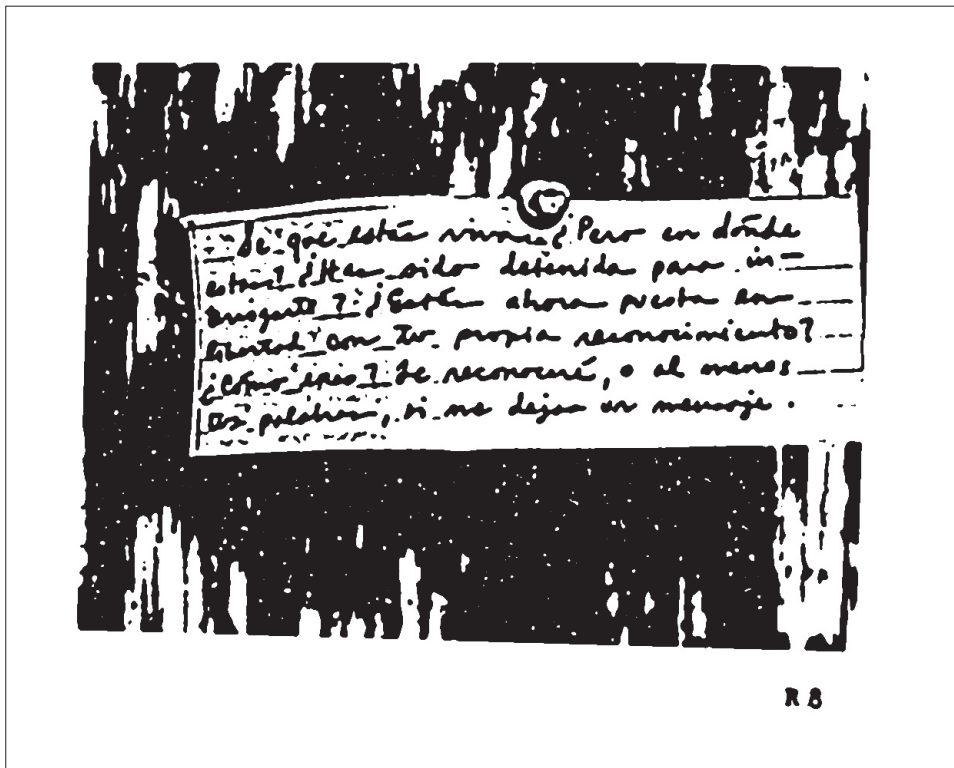 Sé que estás viva ¿Pero en dónde
estás? ¿Has sido detenida para in-
terrogarte? ¿Estás ahora puesta en
libertad con tu propia reconocimiento?
¿Cómo eres? Te reconoceré, o al menos
tus palabras, si me dejas un mensaje.
R 8